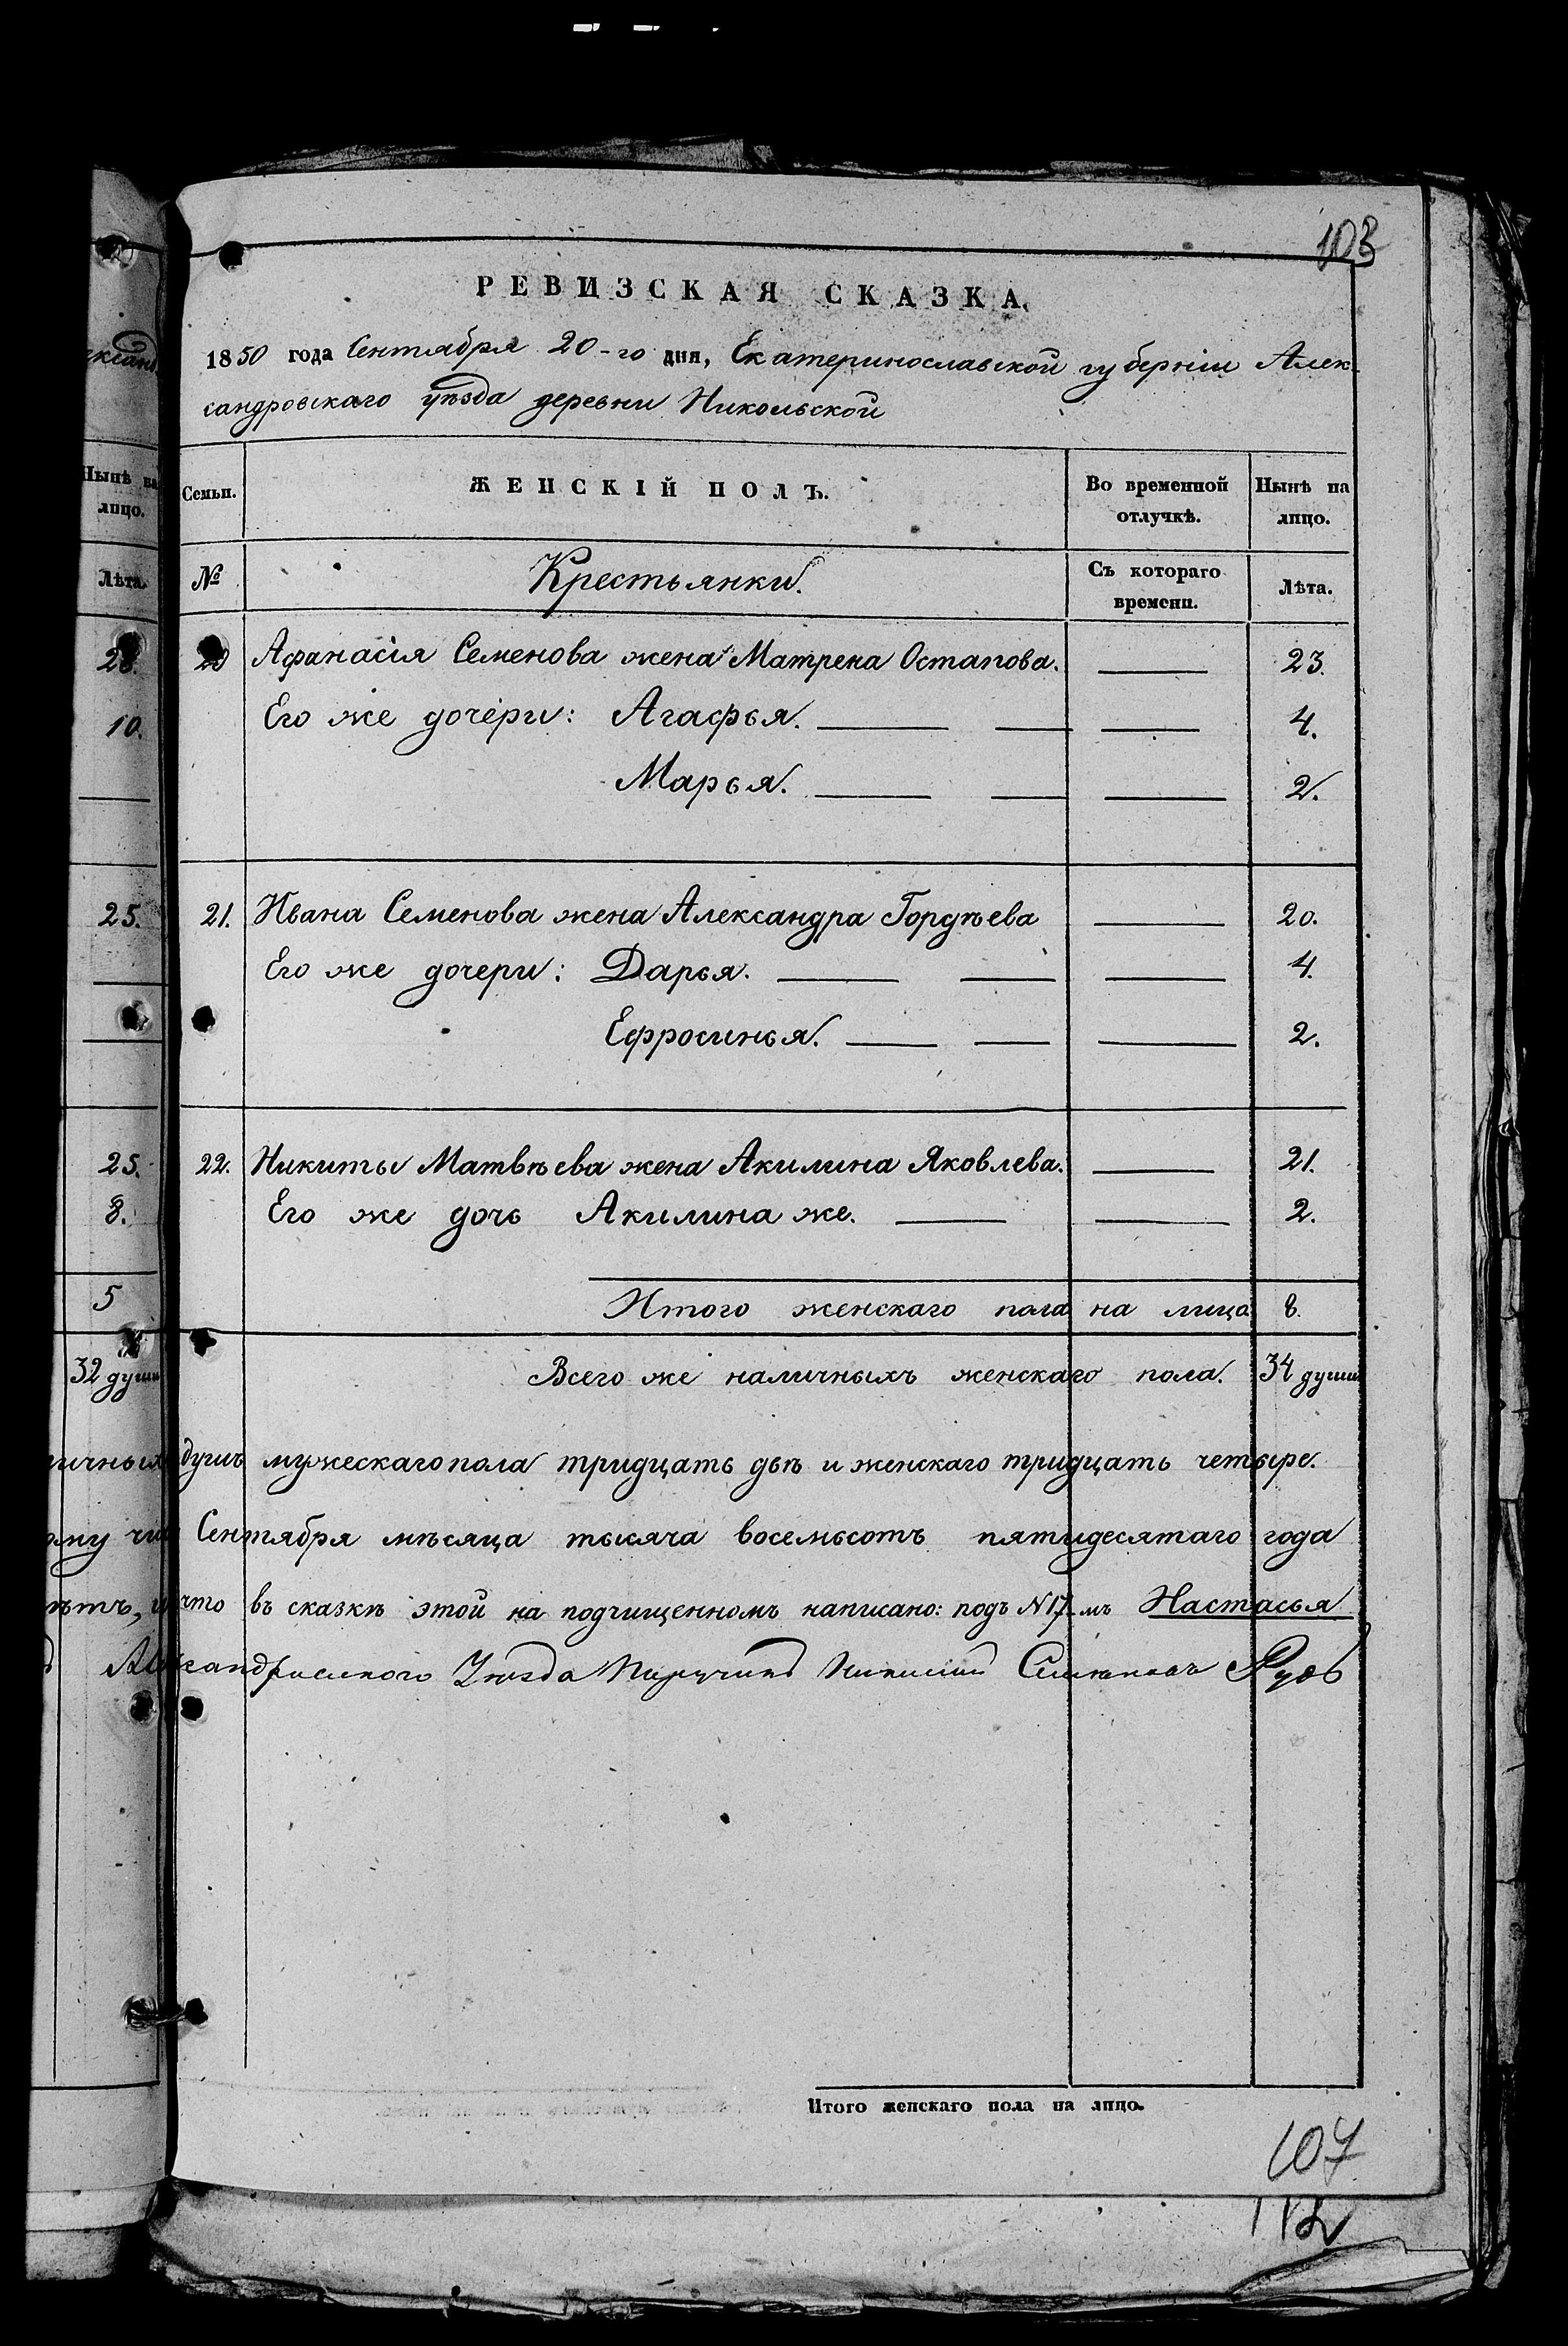 103
РЕВИЗСКАЯ СКАЗКА.
1850 года Сентября 20-го дня, Екатеринославской губерніи Алек-
сандровскаго уѣзда деревни Никольской
Нынѣ на лицо.
Семьи.
ЖЕНСКІЙ ПОЛЪ.
Во временной отлучкѣ.
Нынѣ на лицо.
Лѣта.
№
Крестьянки.
Съ котораго времени.
Лѣта.
28. 20 Афанасія Семенова жена Матрена Остапова. 23.
10. Его же дочери: Агафья. 4.
Марья. 2.
25. 21. Ивана Семенова жена Александра Гордѣева 20.
Его же дочери: Дарья. 4.
Ефросинья. 2.
25. 22. Никиты Матвѣева жена Акилина Яковлева. 21.
8. Его же дочь Акилина же. 2.
5 Итого женскаго пола на лицо 8.
32 души Всего же наличныхъ женскаго пола. 34 души
душъ мужескаго пола тридцать двѣ и женскаго тридцать четыре.
Сентября мѣсяца тысяча восемьсотъ пятидесятаго года
что въ сказкѣ этой на подчищенномъ написано: подъ N 17-мъ Настасья
Александровского Уѣзда
Итого женскаго пола на лицо.
107
112